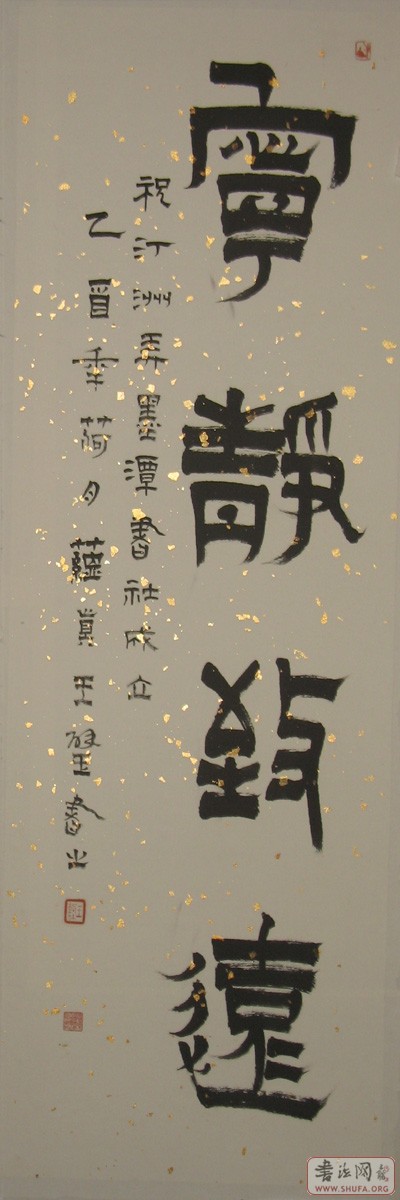 寧靜致遠
祝汀洲弄墨潭書社成立
乙酉季荷月蘊真王堅書之
书法网
WWW.SHUFA.ORG